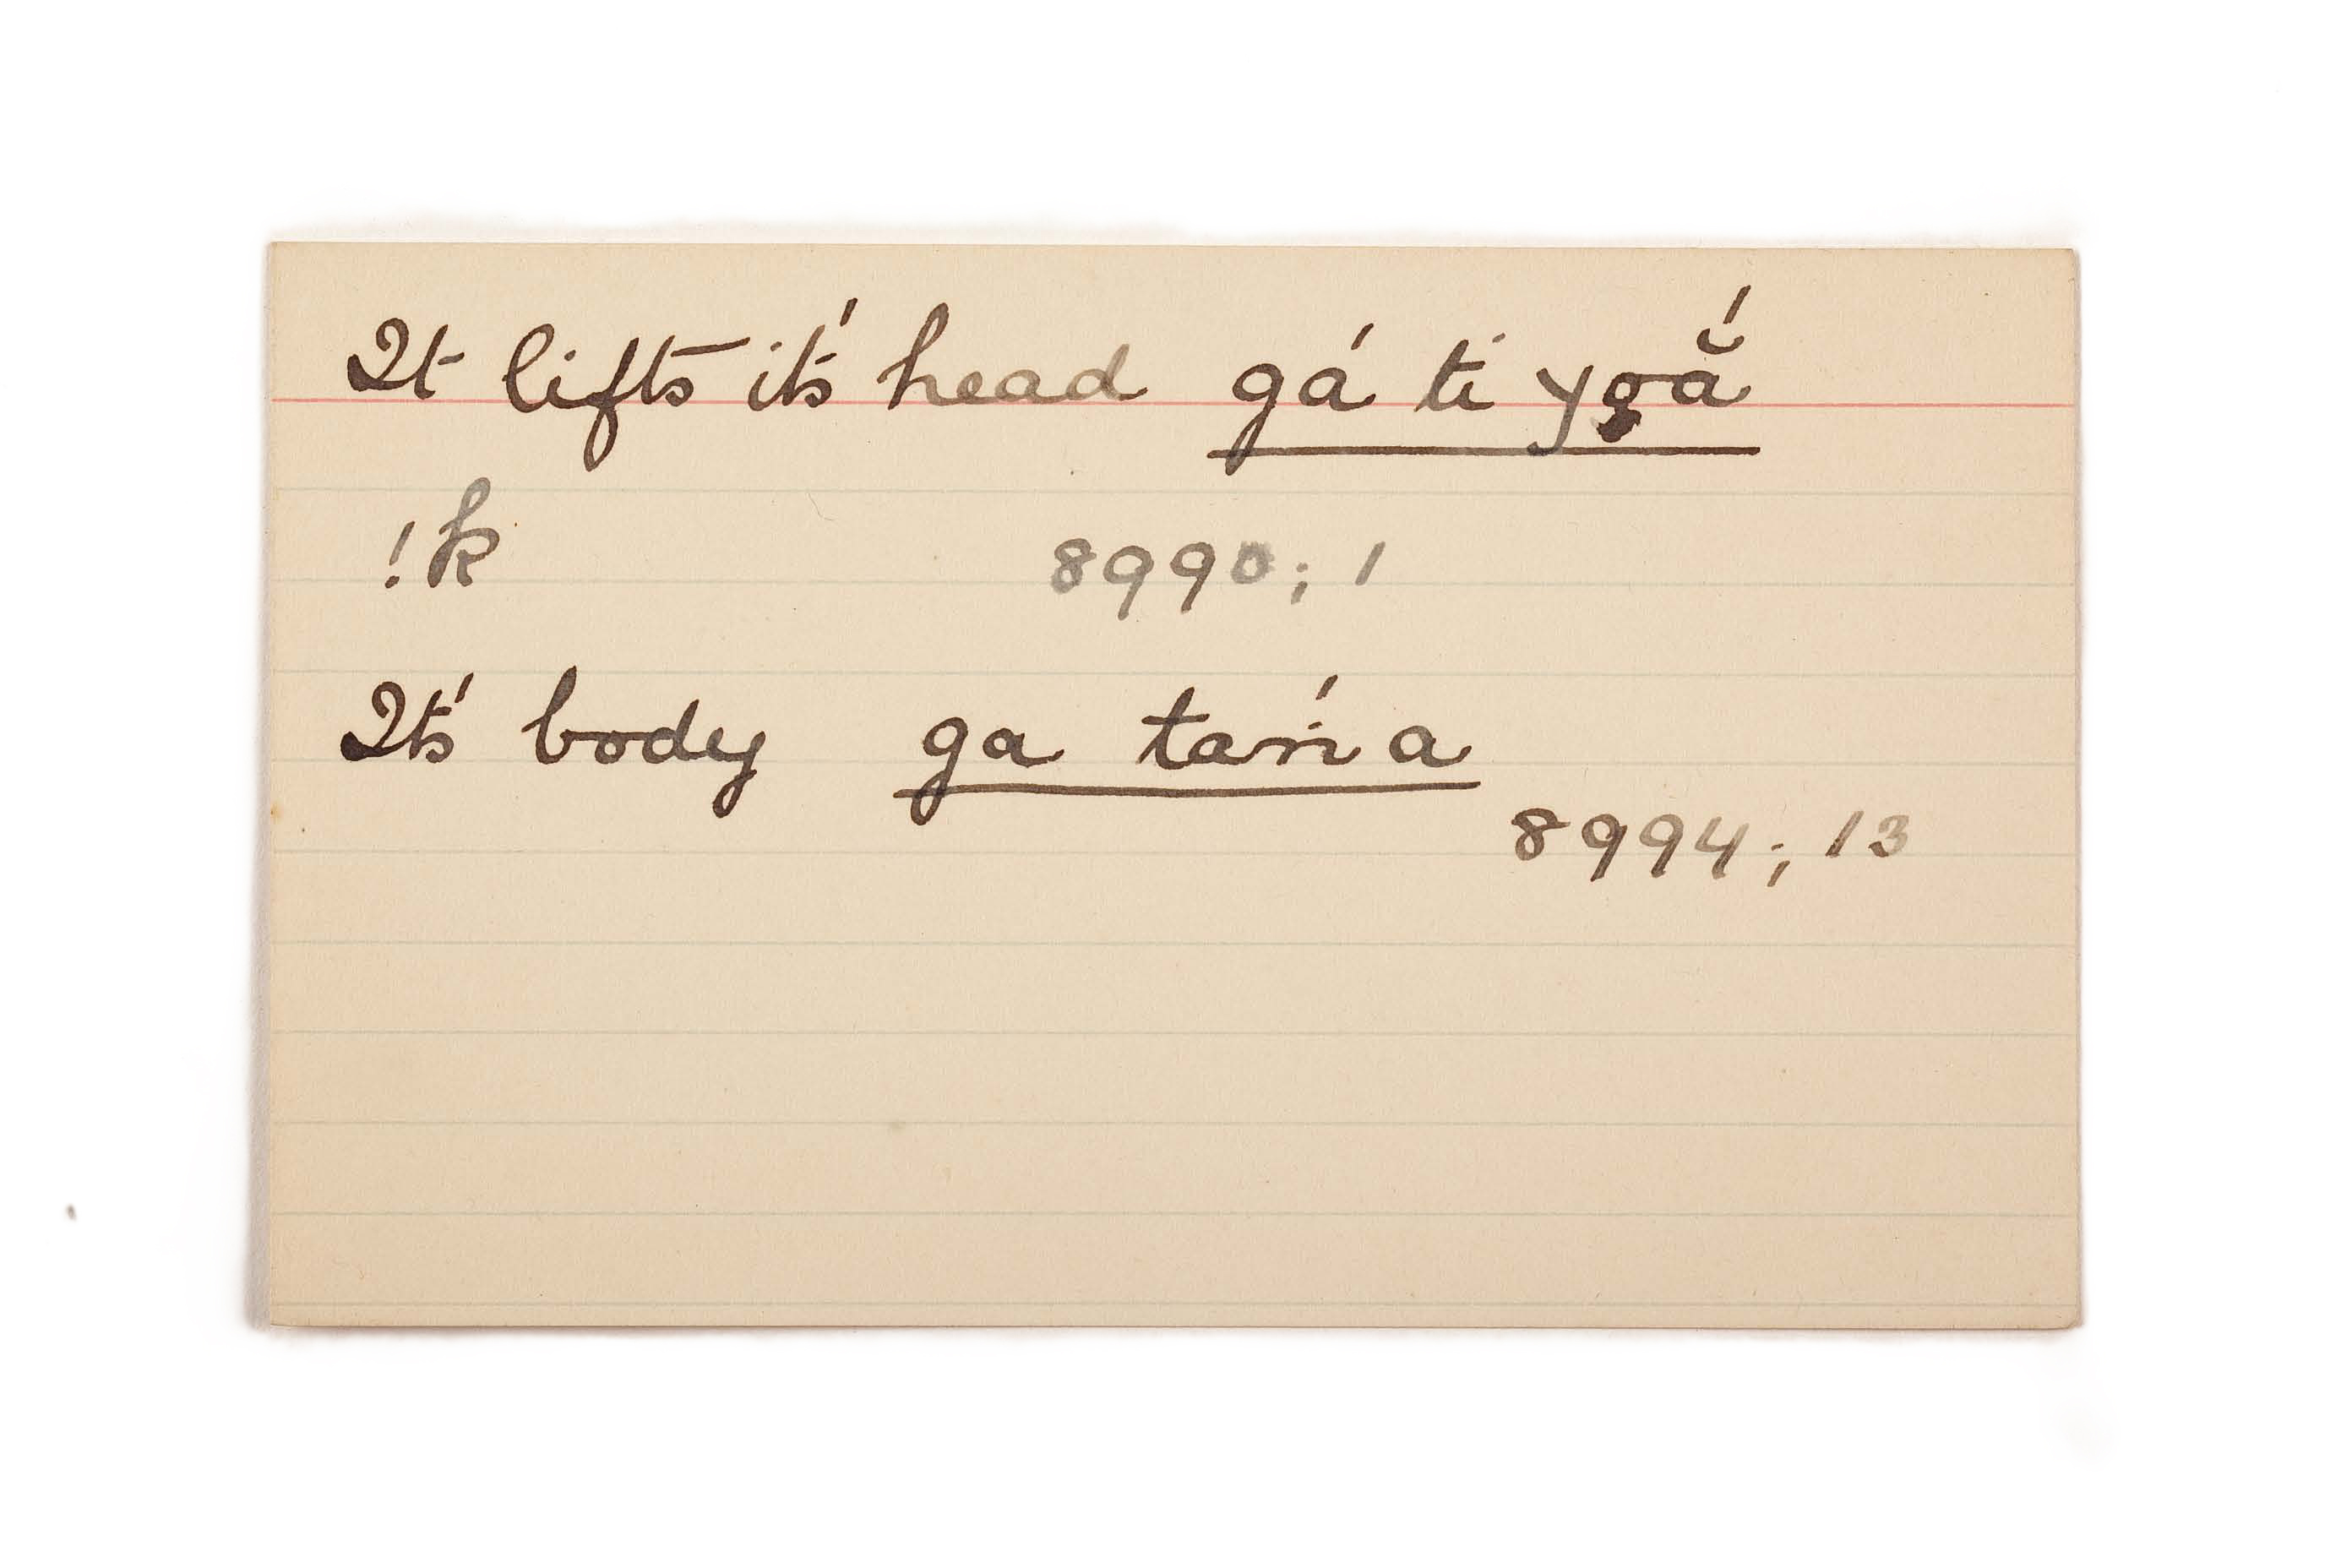 It lifts it's head gá ti yoắ
!k 8990; 1
It's body ga tań a
8994; 13